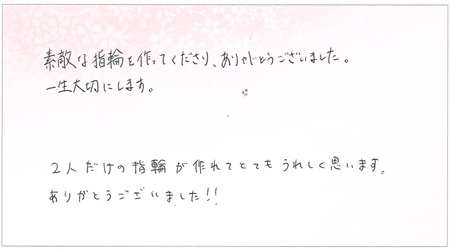 素敵な指輪を作ってくださり、ありがとうございました。
一生大切にします。
2人だけの指輪が作れてとてもうれしく思います。
ありがとうございました!!